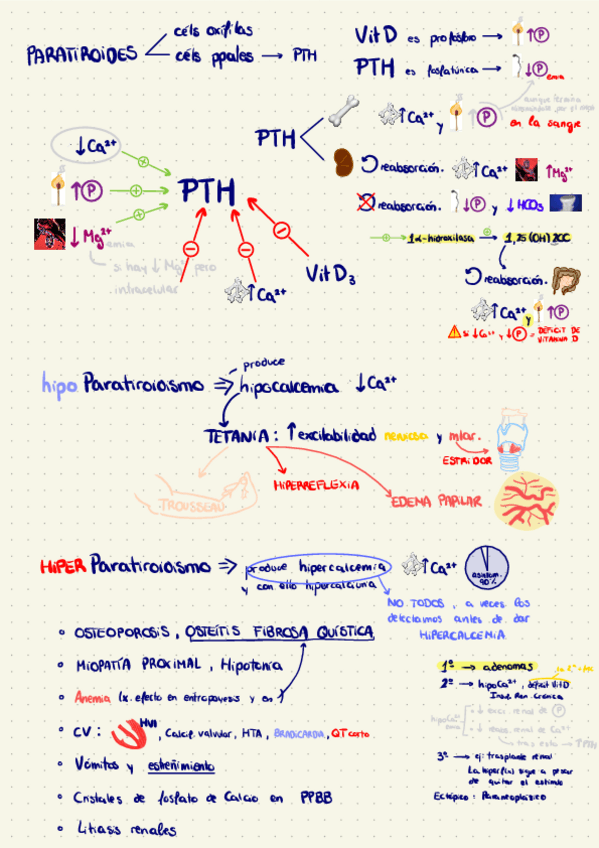 PARATIROIDES
céls oxífilas
céls ppales → PTH
Vit D es profósforo → ↑ P
PTH es fosfatúrica → ↓ P emia
PTH
↑ Ca²⁺ y ↑ P en la sangre
reabsorción. ↑ Ca²⁺ ↑ Mg²⁺
reabsorción. ↓ P y ↓ HCO₃
1α-hidroxilasa → 1,25 (OH) 2CC
reabsorción.
↑ Ca²⁺ y ↑ P
si ↓ Ca²⁺ y ↓ P = DÉFICIT DE VITAMINA D
↓ Ca²⁺
↑ P
↓ Mg²⁺ emia
si hay ↓ Mg²⁺ pero
intracelular
PTH
↑ Ca²⁺
Vit D₃
hipo Paratiroidismo ⇒ produce hipocalcemia ↓ Ca²⁺
TETANIA: ↑ excitabilidad nerviosa y mlar.
ESTRIDOR
TROUSSEAU
HIPERREFLEXIA
EDEMA PAPILAR
HIPER Paratiroidismo ⇒ produce hipercalcemia ↑ Ca²⁺
y con ello hipercalciuria
asintom. 90%
NO TODOS, a veces los
detectamos antes de dar
HIPERCALCEMIA
• OSTEOPOROSIS, OSTEÍTIS FIBROSA QUÍSTICA
• MIOPATÍA PROXIMAL, Hipotonía
• Anemia (x. efecto en eritropoyesis y en )
• CV: HVI, Calcif. valvular, HTA, BRADICARDIA, QT corto
• Vómitos y estreñimiento
• Cristales de fosfato de Calcio en PPBB
• Litiasis renales
1º → adenomas
2º → hipoCa²⁺, déficit Vit D
Insuf. Ren. Crónica
hipoCa²⁺
↓ excr. renal de P
↓ renal de Ca²⁺
tras esto → ↑ PTH
3º → ej: trasplante renal
La hiperf(x) sigue a pesar
de quitar el estímulo
Ectópico: Paraneoplásico